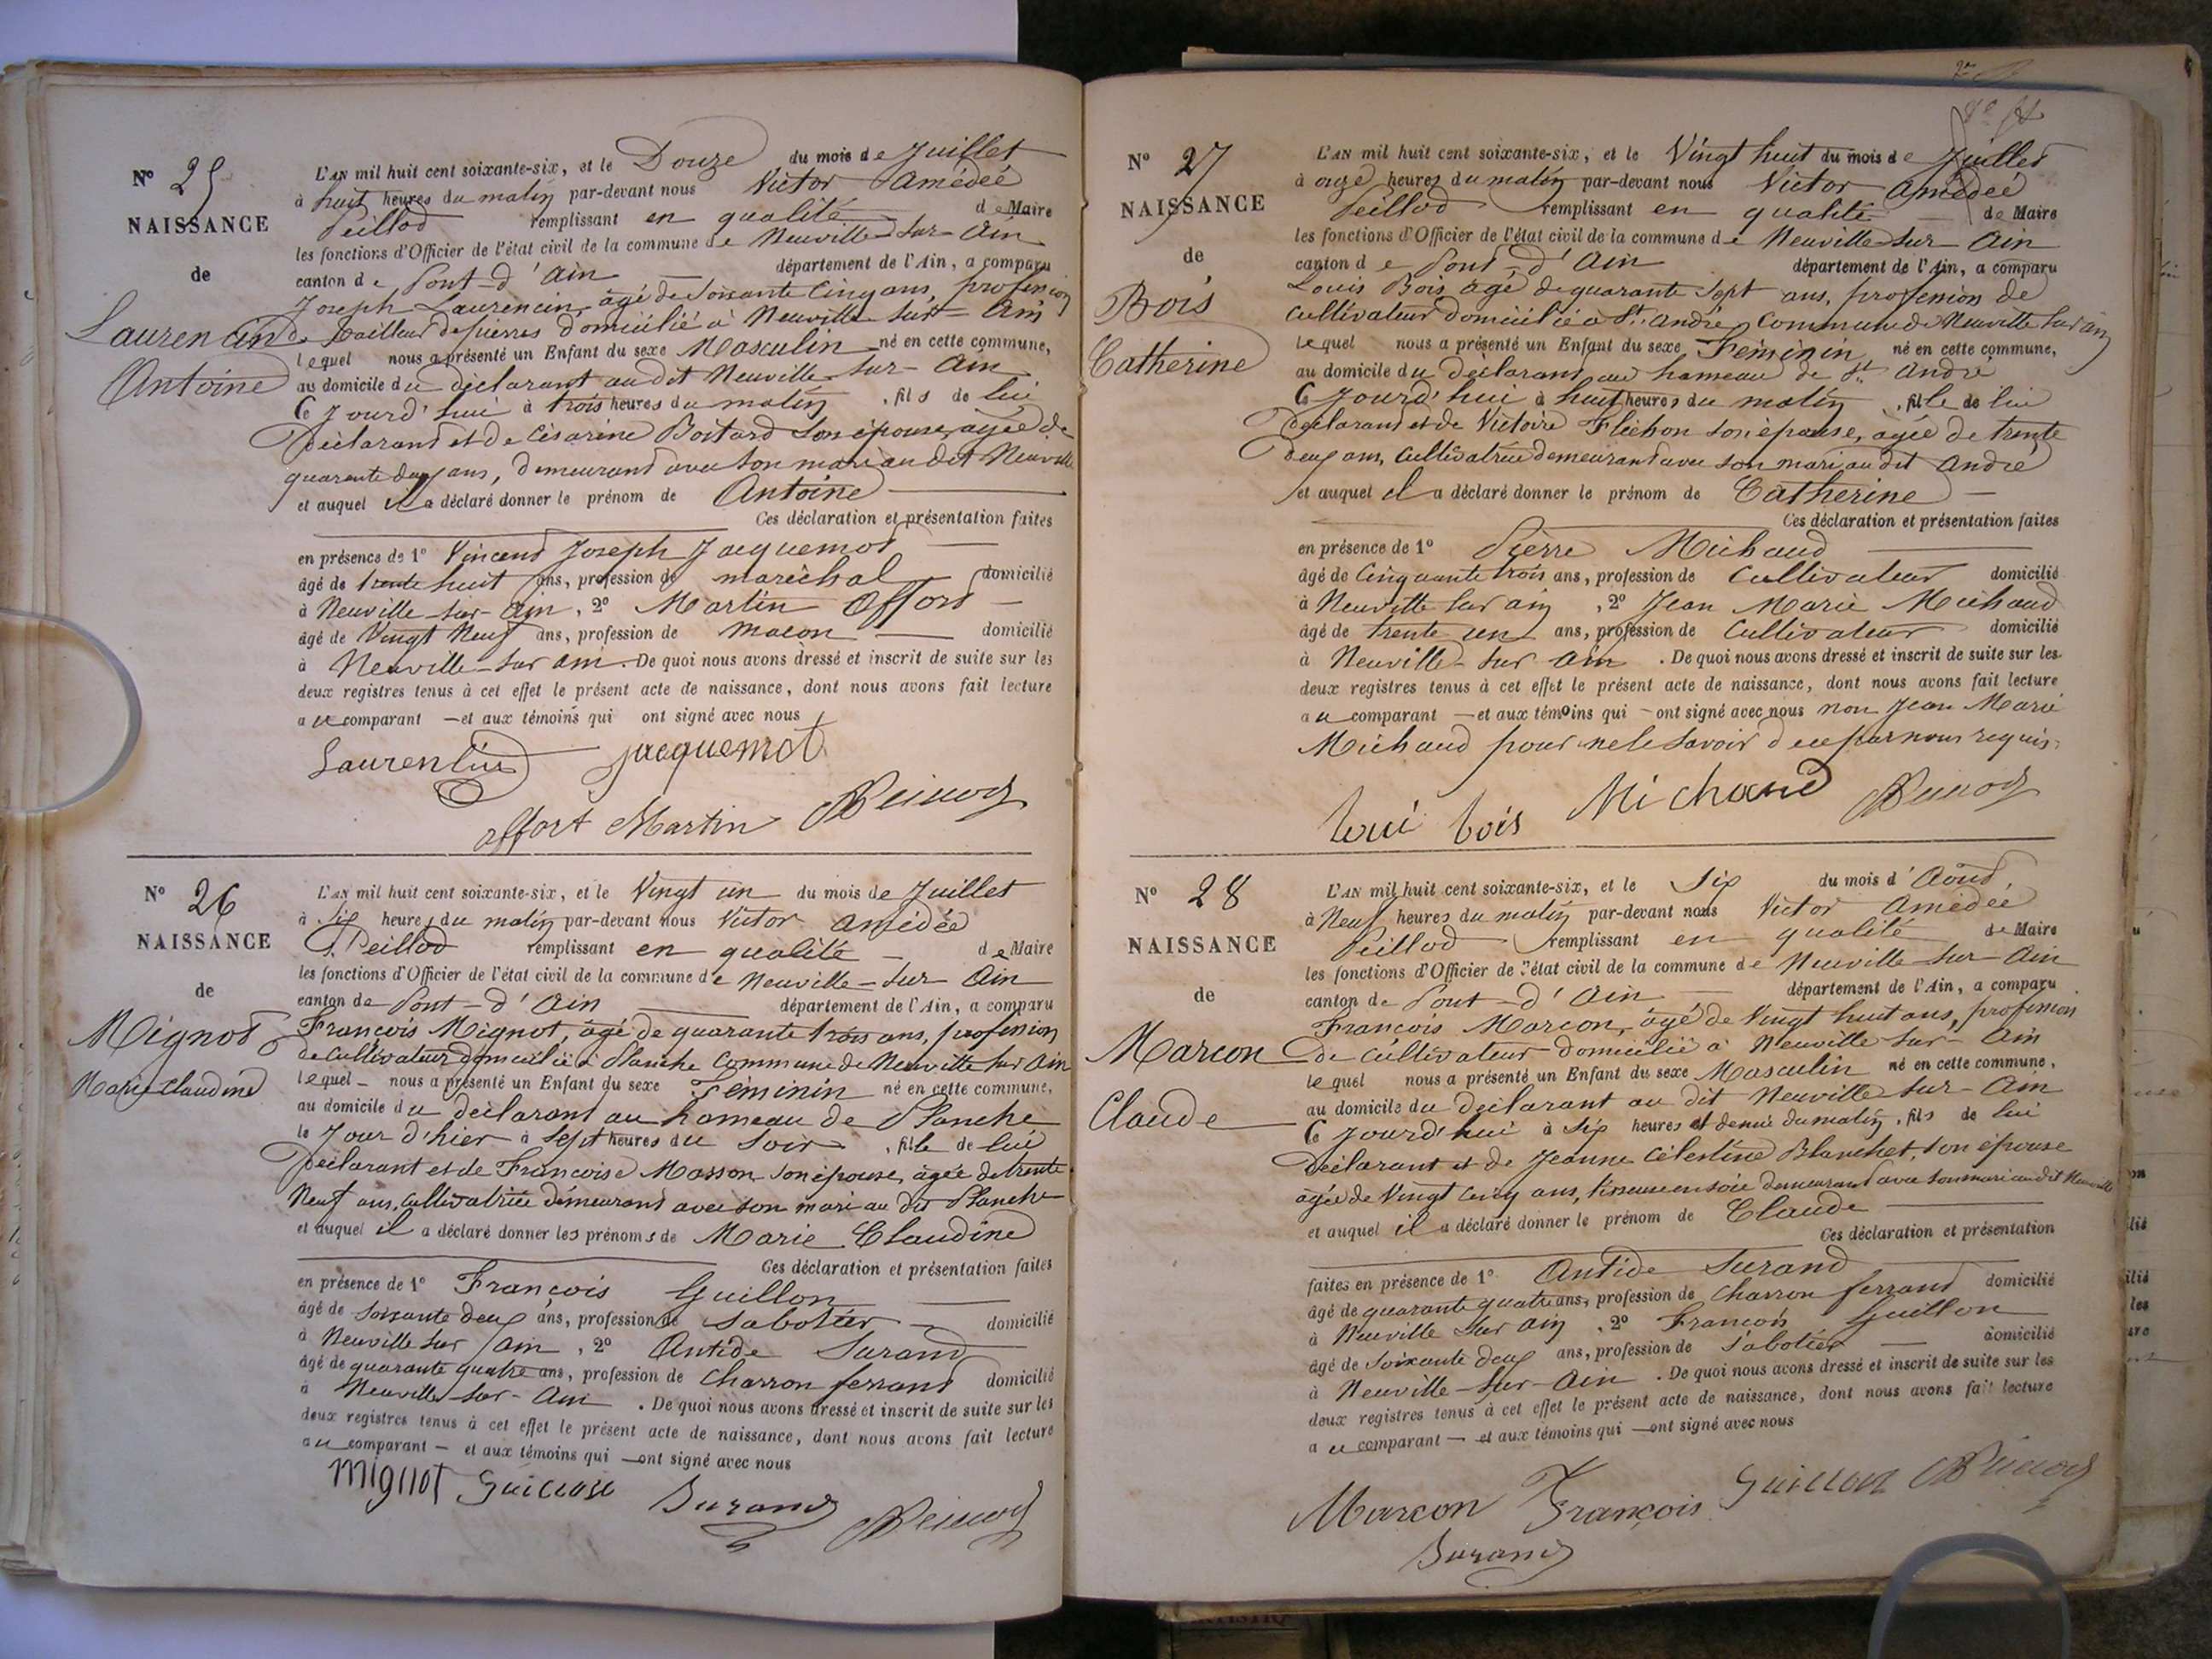 Nº 25
NAISSANCE
de
Laurencin
Antoine
L'AN mil huit cent soixante-six, et le Douze du mois de Juillet
à huit heures du matin par-devant nous Victor Amédée
Peillod remplissant en qualité de Maire
les fonctions d'Officier de l'état civil de la commune de Neuville-sur-Ain
canton de Pont-d'Ain département de l'Ain, a comparu
Joseph Laurencin, âgé de soixante cinq ans, profession
de tailleur de pierres domicilié à Neuville sur Ain
lequel nous a présenté un Enfant du sexe Masculin né en cette commune,
au domicile du déclarant audit Neuville-sur-Ain
Ce Jourd'hui à trois heures du matin, fils de lui
Déclarant et de Césarine Bottard son épouse, agée de
quarante deux ans, demeurant avec son mari au dit Neuville
et auquel il a déclaré donner le prénom de Antoine
Ces déclaration et présentation faites
en présence de 1º Vincent Joseph Jacquemot
âgé de trente huit ans, profession de maréchal domicilié
à Neuville-sur-Ain, 2º Martin Offort
âgé de Vingt Neuf ans, profession de macon domicilié
à Neuville-sur ain. De quoi nous avons dressé et inscrit de suite sur les
deux registres tenus à cet effet le présent acte de naissance, dont nous avons fait lecture
au comparant et aux témoins qui ont signé avec nous
Laurencin Jacquemot
offort Martin Peillod
Nº 26
NAISSANCE
de
Mignot
Marie Claudine
L'AN mil huit cent soixante-six, et le Vingt un du mois de Juillet
à Six heures du matin par-devant nous Victor Amédée
Peillod remplissant en qualité de Maire
les fonctions d'Officier de l'état civil de la commune de Neuville-sur-Ain
canton de Pont-d'Ain département de l'Ain, a comparu
François Mignot, âgé de quarante trois ans, profession
de cultivateur domicilié à Planche Commune de Neuville sur Ain
lequel nous a présenté un Enfant du sexe Féminin né en cette commune,
au domicile du déclarant au hameau de Planche
le Jour d'hier à Sept heures du Soir, fille de lui
Déclarant et de Francoise Masson son épouse, agée de trente
Neuf ans, cultivatrice demeurant avec son mari au dit Planche
et auquel il a déclaré donner les prénoms de Marie Claudine
Ces déclaration et présentation faites
en présence de 1º François Guillon
âgé de soixante deux ans, profession de Sabotier domicilié
à Neuville sur ain, 2º Antide Surand
âgé de quarante quatre ans, profession de Charron ferrant domicilié
à Neuville-sur-Ain. De quoi nous avons dressé et inscrit de suite sur les
deux registres tenus à cet effet le présent acte de naissance, dont nous avons fait lecture
au comparant et aux témoins qui ont signé avec nous
Mignot Guillon Surand Peillod
Nº 27
NAISSANCE
de
Bois
Catherine
L'AN mil huit cent soixante-six, et le Vingt huit du mois de Juillet
à onze heures du matin par-devant nous Victor Amédée
Peillod remplissant en qualité de Maire
les fonctions d'Officier de l'état civil de la commune de Neuville-sur-Ain
canton de Pont-d'Ain département de l'Ain, a comparu
Louis Bois, agé de quarante Sept ans, profession de
cultivateur domicilié à St. André Commune de Neuville sur ain
lequel nous a présenté un Enfant du sexe Féminin, né en cette commune,
au domicile du déclarant au hameau de St. André
Ce Jourd'hui à huit heures du matin, fille de lui
Déclarant et de Victoire Fléchon son épouse, agée de trente
deux ans, cultivatrice demeurant avec son mari au dit André
et auquel il a déclaré donner le prénom de Catherine
Ces déclaration et présentation faites
en présence de 1º Pierre Michaud
âgé de Cinquante trois ans, profession de Cultivateur domicilié
à Neuville sur ain, 2º Jean Marie Michaud
âgé de trente un ans, profession de Cultivateur domicilié
à Neuville-sur-ain. De quoi nous avons dressé et inscrit de suite sur les
deux registres tenus à cet effet le présent acte de naissance, dont nous avons fait lecture
au comparant et aux témoins qui ont signé avec nous non Jean Marie
Michaud pour ne le savoir de ce par nous requis.
Loui bois Michaud Peillod
Nº 28
NAISSANCE
de
Marcon
Claude
L'AN mil huit cent soixante-six, et le Six du mois d'Aout,
à Neuf heures du matin par-devant nous Victor Amédée
Peillod remplissant en qualité de Maire
les fonctions d'Officier de l'état civil de la commune de Neuville-sur-Ain
canton de Pont-d'Ain département de l'Ain, a comparu
François Marcon, âgé de Vingt huit ans, profession
de cultivateur domicilié à Neuville-sur-Ain
lequel nous a présenté un Enfant du sexe Masculin né en cette commune,
au domicile du déclarant au dit Neuville sur-Ain
Ce Jourd'hui à Six heures et demie du matin, fils de lui
Déclarant et de Jeanne Célestine Blanchet, son épouse
agée de Vingt cinq ans, tisseuse en soie demeurant avec son mari au dit Neuville
et auquel il a déclaré donner le prénom de Claude
Ces déclaration et présentation
faites en présence de 1º Antide Surand
âgé de quarante quatre ans, profession de Charron ferrant domicilié
à Neuville sur ain, 2º Francois Guillon
âgé de Soixante deux ans, profession de Sabotier domicilié
à Neuville-sur-Ain. De quoi nous avons dressé et inscrit de suite sur les
deux registres tenus à cet effet le présent acte de naissance, dont nous avons fait lecture
au comparant et aux témoins qui ont signé avec nous
Marcon François Guillon Peillod
Surand